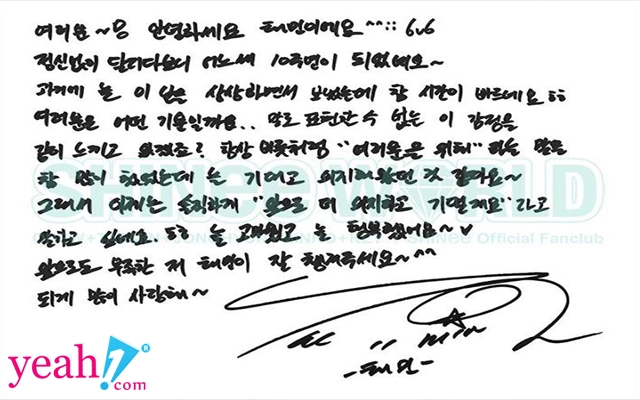 여러분~ 안녕하세요 태민이에요 ^^:: 6v6
정신없이 달리다보니 어느새 10주년이 되었네요~
과거에 늘 이 날을 상상하면서 보냈는데 참 시간이 빠르네요 ㅎㅎ
여러분은 어떤 기분일까요.. 말로 표현할 수 없는 이 감정을
같이 느끼고 있겠죠? 항상 버릇처럼 "여러분을 위해" 라는 말을
참 많이 했었는데 늘 기대고 의지해왔던 것 같아요~
그래서 이제는 솔직하게 "앞으로 더 의지하고 기댈게요" 라고
말하고 싶네요. ㅎㅎ 늘 고마웠고 늘 행복했어요~ ♥
앞으로도 부족한 저 태민이 잘 챙겨주세요~ ^^
되게 많이 사랑해~
-태민-
SHINee WORLD
SHINee Official Fanclub
yeah1.com